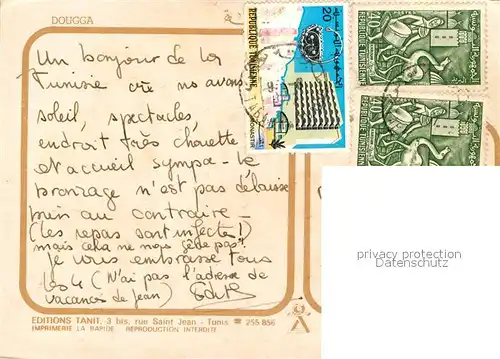 DOUGGA
Un bonjour de la
Tunisie où no avons
soleil, spectacles,
endroit très chouette
et accueil sympa - le
bronzage n'est pas délaissé
bien au contraire -
(les repas sont infects!)
mais cela ne nous gêne pas!
Je vous embrasse tous
les 4 (N'ai pas l'adresse de
vacances de Jean)
EDITIONS TANIT, 3 bis, rue Saint Jean - Tunis ☎ 255-856
IMPRIMERIE LA RAPIDE REPRODUCTION INTERDITE
REPUBLIQUE TUNISIENNE
20
privacy protection
Datenschutz